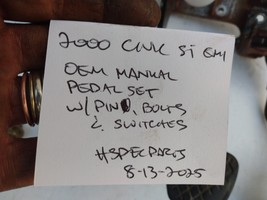 2000 CIVIC SI EM1
OEM MANUAL
PEDAL SET
W/ PIN, BOLTS
& SWITCHES
#SPECPARTS
8-13-2025